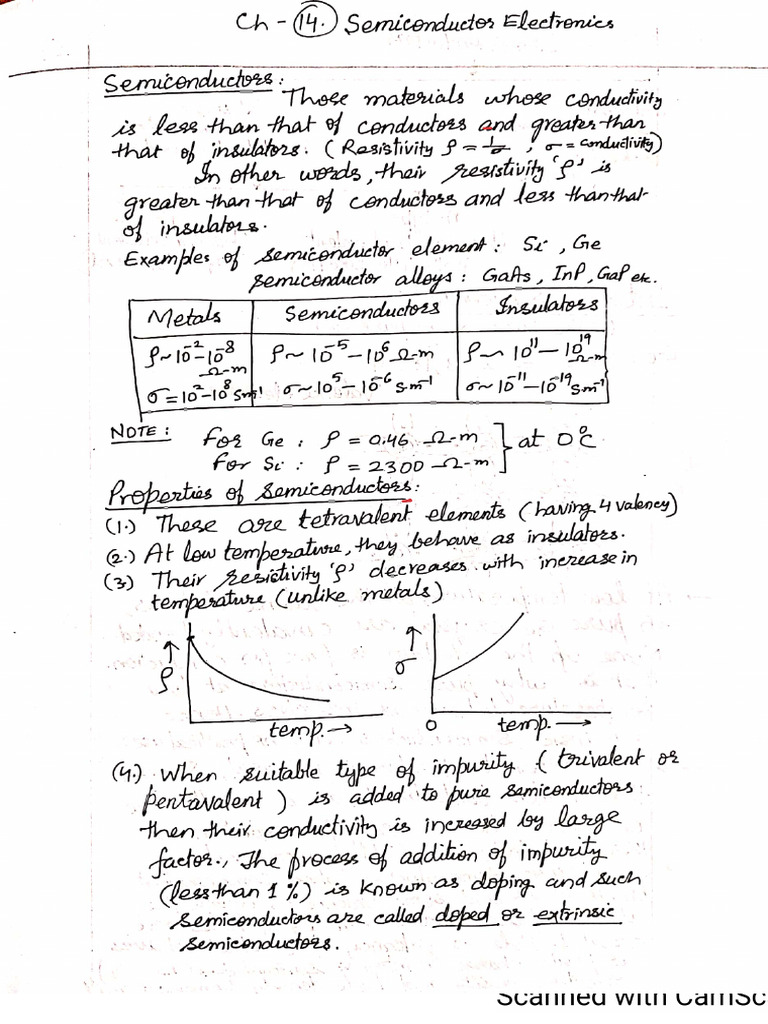 Ch - 14. Semiconductor Electronics
Semiconductors:
Those materials whose conductivity
is less than that of conductors and greater than
that of insulators. (Resistivity ρ = 1/σ , σ = conductivity)
In other words, their resistivity 'ρ' is
greater than that of conductors and less than that
of insulators.
Examples of semiconductor element: Si, Ge
semiconductor alloys: GaAs, InP, GaP etc.
Metals Semiconductors Insulators
ρ~10⁻²-10⁻⁸ Ω-m ρ~ 10⁻⁵ - 10⁶ Ω-m ρ~ 10¹¹ - 10¹⁹ Ω-m
σ = 10²-10⁸ Sm⁻¹ σ~ 10⁵ - 10⁻⁶ Sm⁻¹ σ~ 10⁻¹¹ - 10⁻¹⁹ Sm⁻¹
NOTE: For Ge : ρ = 0.46 Ω-m } at 0°C
For Si : ρ = 2300 Ω-m
Properties of Semiconductors:
(1.) These are tetravalent elements (having 4 valency)
(2.) At low temperature, they behave as insulators.
(3) Their resistivity 'ρ' decreases with increase in
temperature (unlike metals)
↑ ρ temp. →
↑ σ 0 temp. →
(4.) When suitable type of impurity (trivalent or
pentavalent) is added to pure semiconductors
then their conductivity is increased by large
factor., The process of addition of impurity
(less than 1%) is known as doping and such
semiconductors are called doped or extrinsic
semiconductors.
Scanned with CamSc